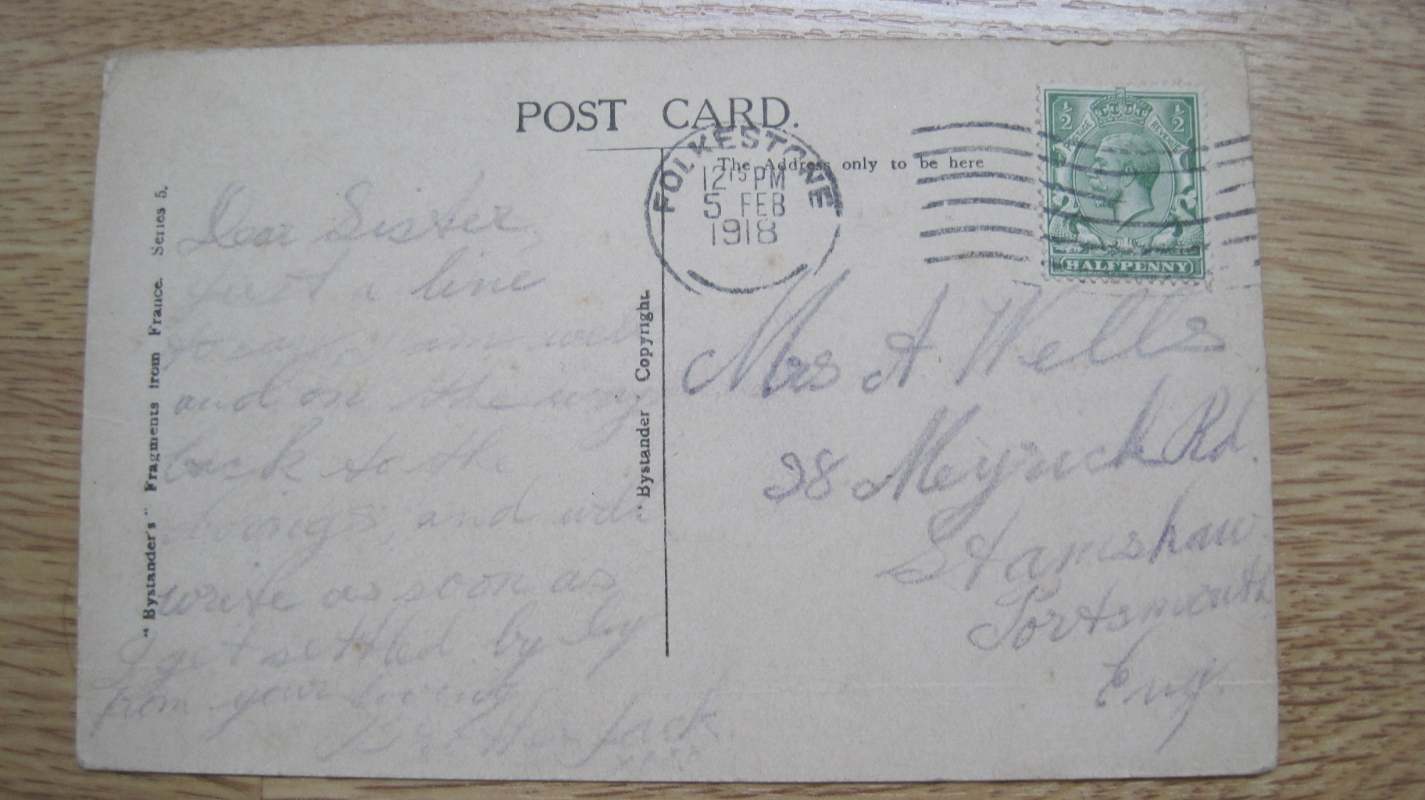 POST CARD.
The Address only to be here
FOLKESTONE
12 15 PM
5 FEB
1918
½ ½
POSTAGE REVENUE
HALFPENNY
"Bystander's" Fragments from France. Series 5.
"Bystander" Copyright.
Dear Sister,
just a line
to say I am well
and on the way
back to the
and will
write as soon as
I get settled by by
from your loving
Brother Jack.
Mrs A Wells
28 Meyrick Rd.
Stamshaw
Portsmouth
Eng.